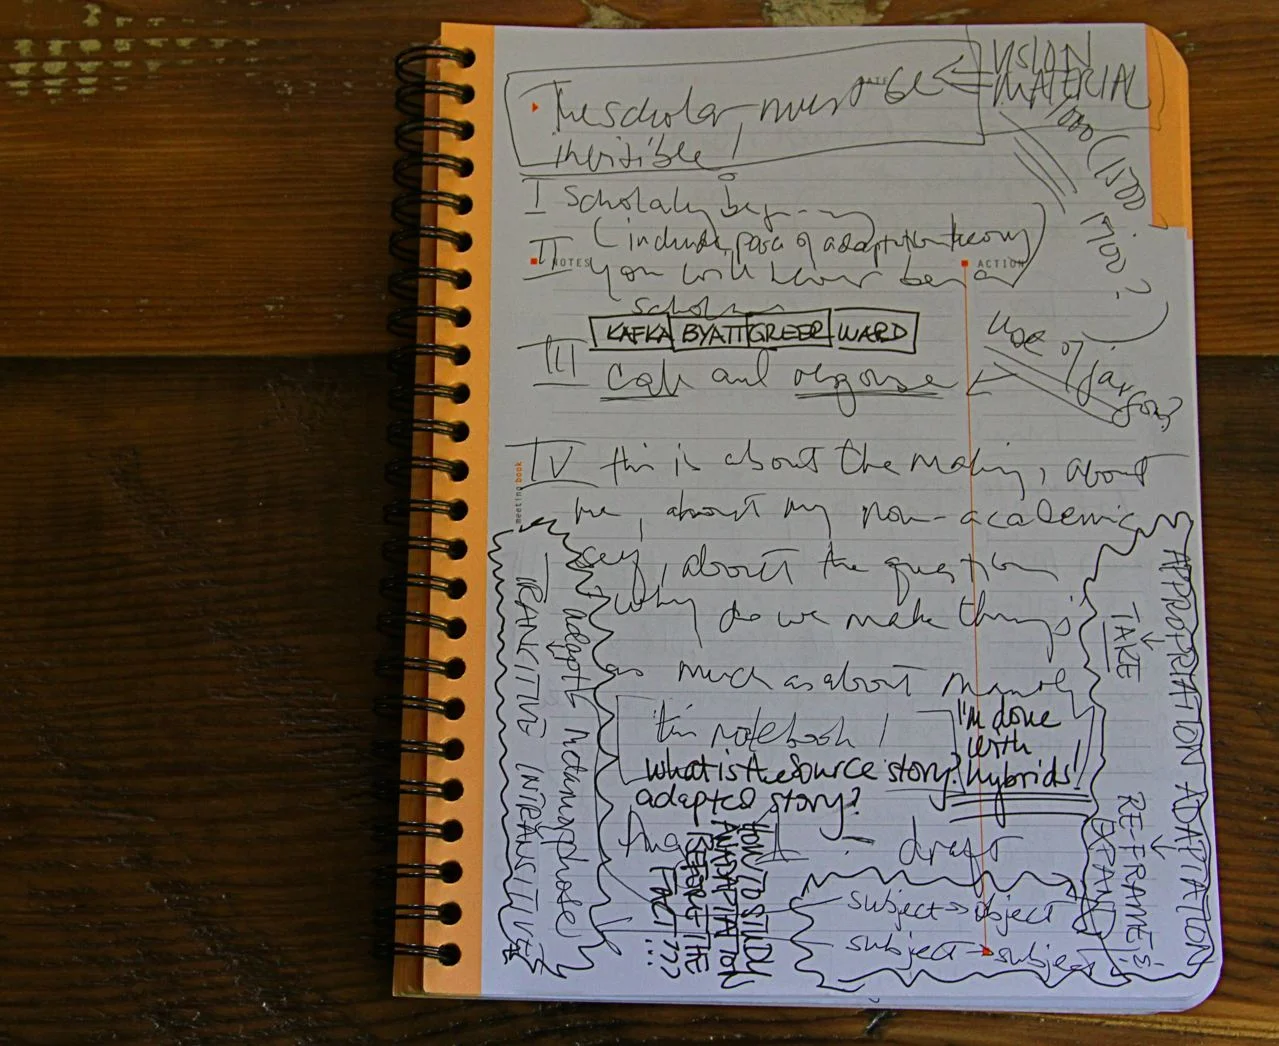 The scholar must be
invisible!
VISION
MATERIAL
1000 (1500
1700?
I Scholarly
(include para of adaptation theory)
II you will never be a
scholar
NOTES
ACTION
KAFKA BYATT GREER WARD
III Call and response
Use of jargon?
meeting book
IV this is about the making, about
me, about my non-academic
self, about the question
why do we make things
as much as about
this notebook!
I'm done
with
hybrids!
what is the source story?
adapted story?
draft
HOW TO STUDY
ANADAPTATION
BEFORE THE
FACT???...
subject → object
subject → subject
adapt metamorphose
TRANSITIVE INTRANSITIVE
APPROPRIATION ADAPTATION
TAKE
RE-FRAME
EXPAND